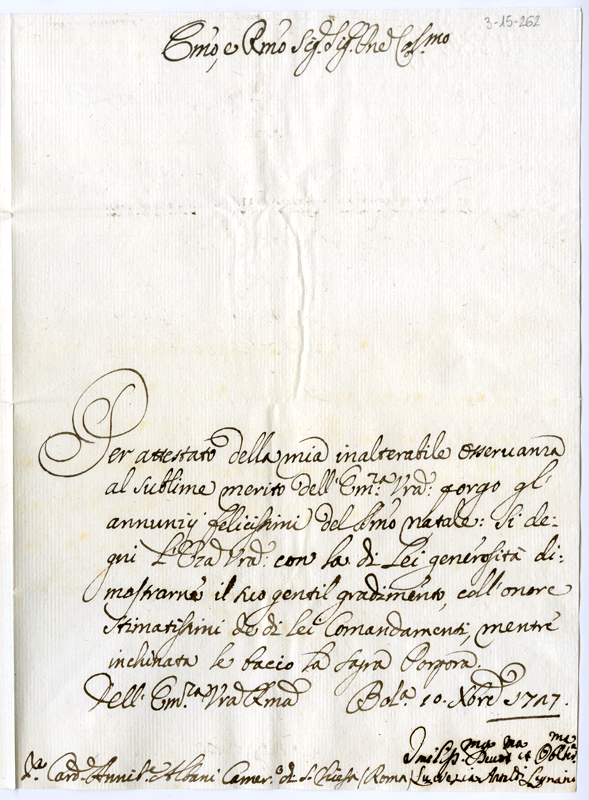 3-15-262
Emo, e Rmo Sig.r Sig.r Pne Col.mo
Per attestato della mia inalterabile osservanza
al sublime merito dell' Em.za Vra: porgo gl'
annunzij felicissimi del Smo natale: si de-
gni l'Eza Vra: con la di Lei generosità di-
mostrarne il suo gentil gradimento, coll' onore
stimatissimi de di lei Comandamenti, mentre
inchinata le bacio la sagra Porpora.
Dell' Em.za Vra Rma Bol.a 10. Xbre 1747.
Umiliss.ma Deuot.ma et Obblig.ma
Sr. Card. Annib.e Albani Camer.o di S. Chiesa (Roma) Lucrezia Ansaldi Lignani